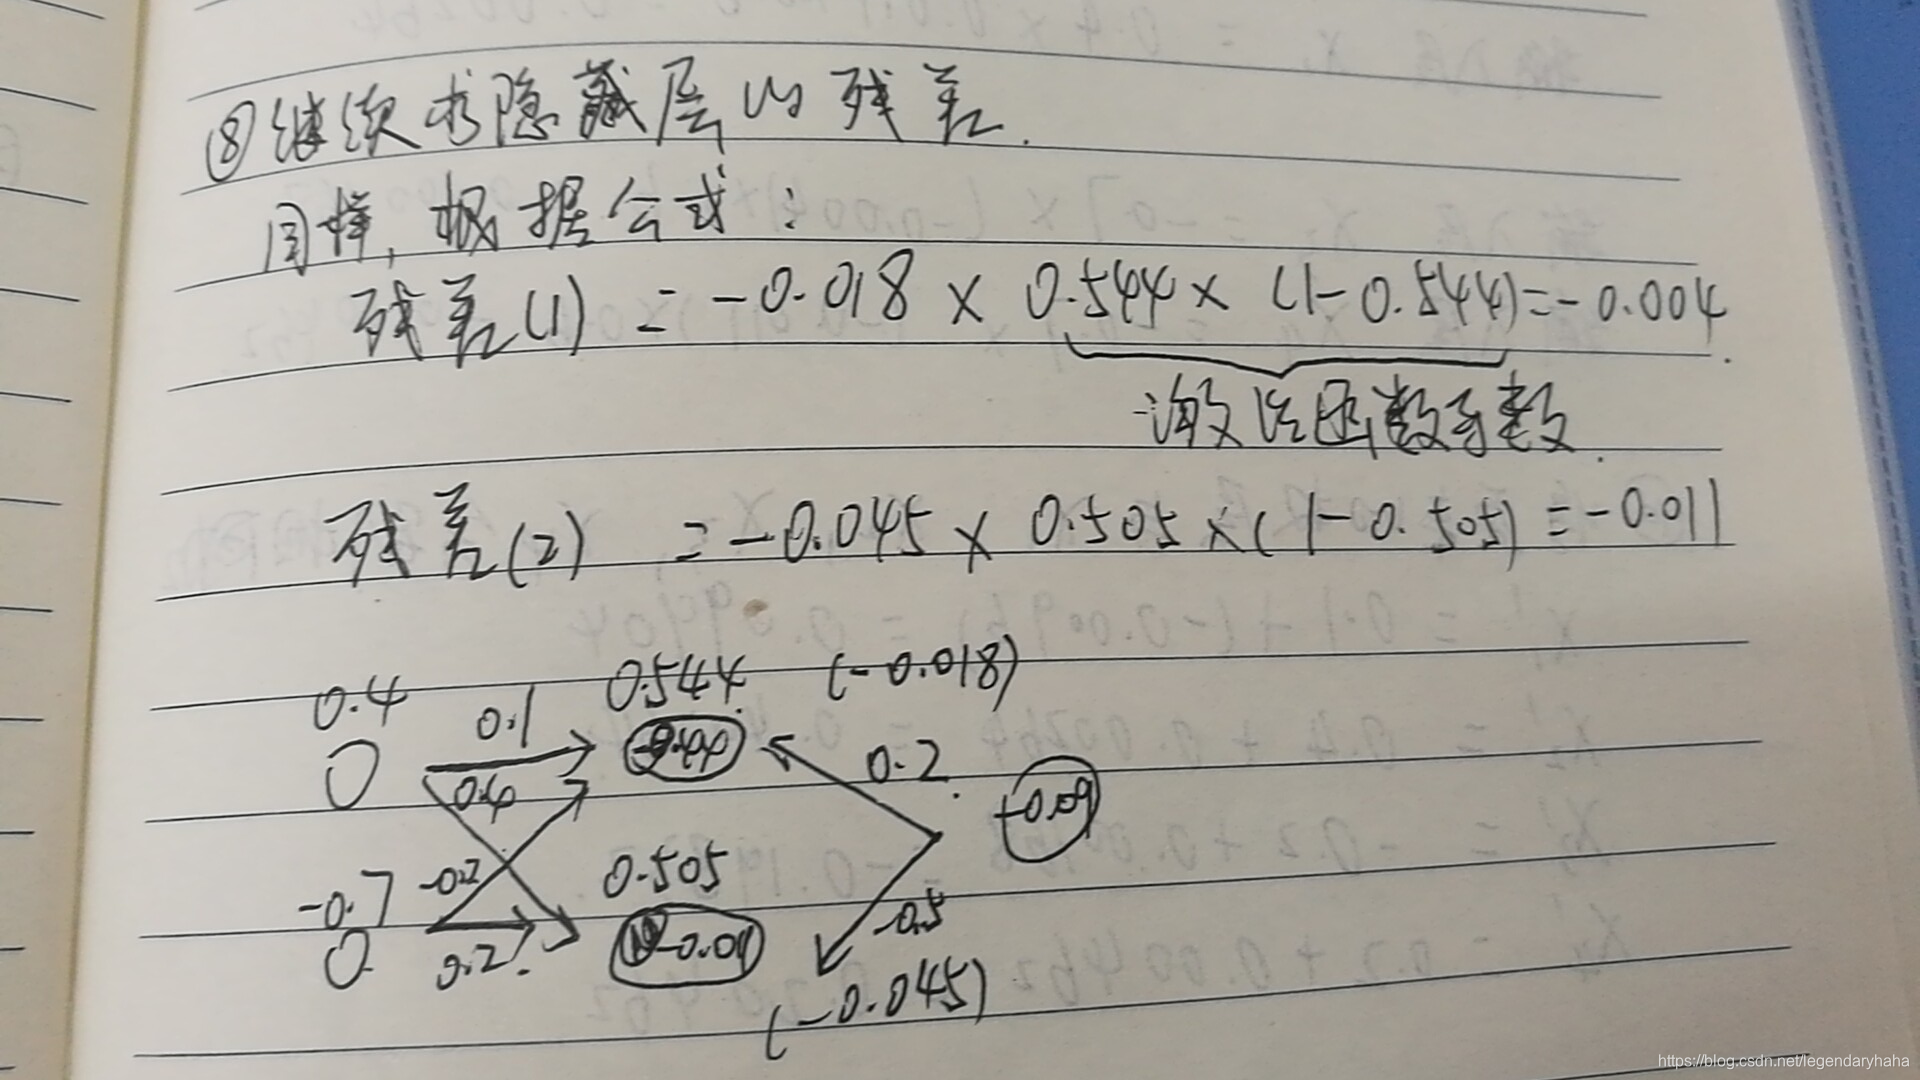 ⑧继续求隐藏层的残差.
同样,根据公式:
残差(1) = -0.018 × 0.544 × (1-0.544)=-0.004.
激活函数系数.
残差(2) = -0.045 × 0.505 ×(1-0.505) = -0.011
0.4 0.1 0.544 (-0.018)
0.4 0.2 -0.09
-0.7 -0.2 0.505
0.2 -0.01 -0.5
(-0.045)
https://blog.csdn.net/legendaryhaha